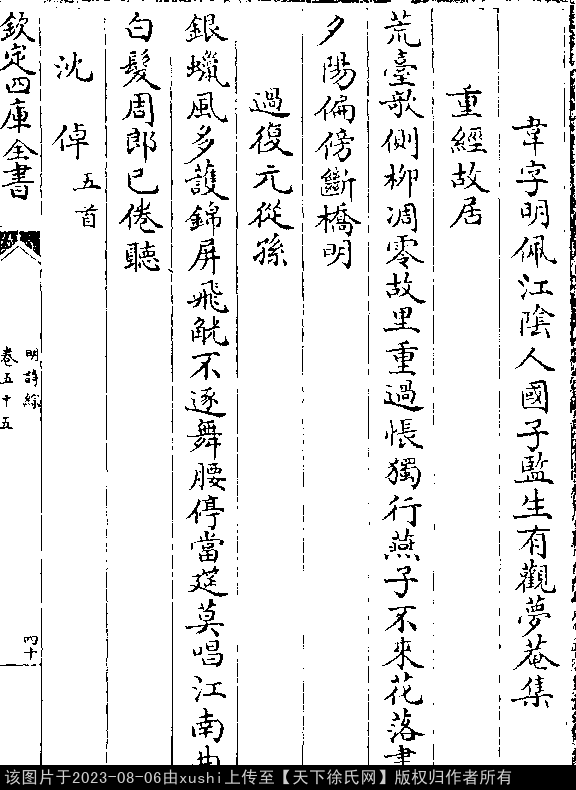 韋字明佩江陰人國子監生有觀夢菴集
重經故居
荒臺歌側柳凋零故里重過悵獨行燕子不來花落盡
夕陽偏傍斷橋明
過復元從孫
銀蠟風多護錦屏飛觥不逐舞腰停當筵莫唱江南曲
白髮周郎已倦聽
沈倬五首
欽定四庫全書
明詩綜
卷五十五
四十
该图片于2023-08-06由xushi上传至【天下徐氏网】版权归作者所有